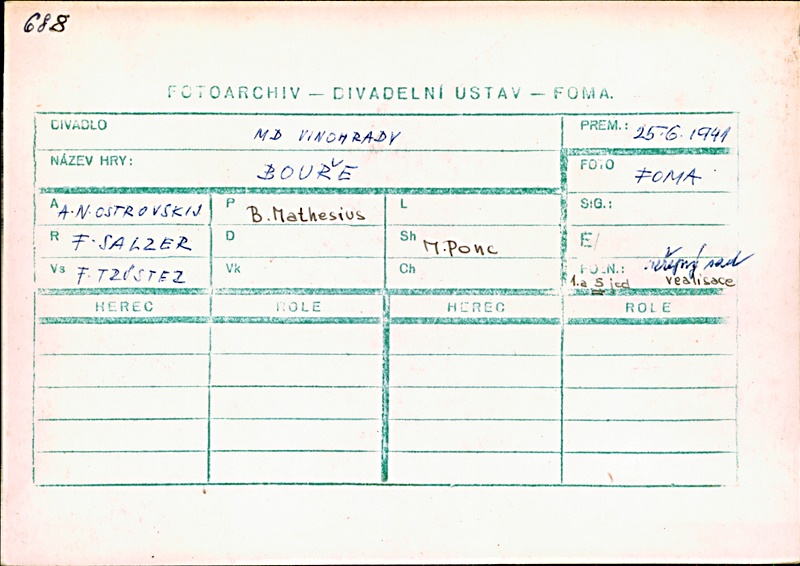 688
FOTOARCHIV — DIVADELNÍ USTAV — FOMA.
DIVADLO MD VINOHRADY PREM.: 25.6.1941
NÁZEV HRY: BOUŘE FOTO FOMA
A A.N. OSTROVSKIJ P B. Mathesius L SIG.:
R F. SALZER D Sh M. Ponc E
Vs F. TRÖSTER Vk Ch POZN.: sad
1. a 5 jed realisace
HEREC ROLE HEREC ROLE